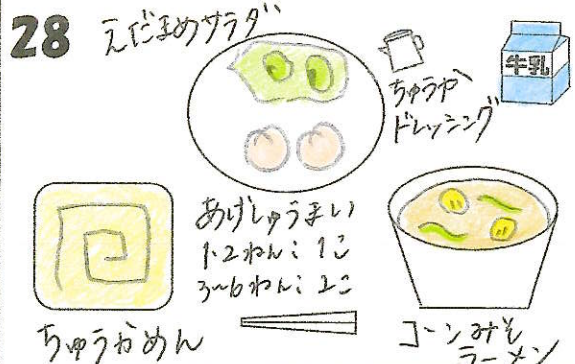 28
えだまめサラダ
牛乳
ちゅうか
ドレッシング
あげしゅうまい
1・2ねん:1こ
3~6ねん:2こ
ちゅうかめん
コーンみそ
ラーメン